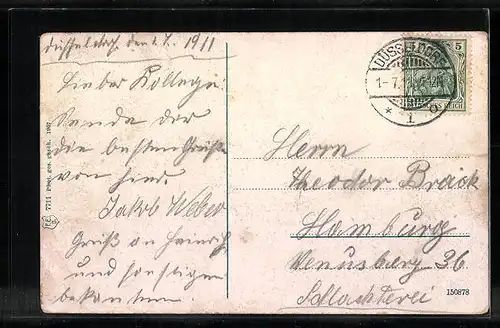 Düsseldorf, den 1.7. 1911
Lieber Kollege!
Sende dir
die besten Grüße
von hier.
Jakob Weber
Gruß an Heinrich
und sonstigen
bekannten
7711 Phot. ges. gesch. 1907
DÜSSELDORF
1-7.11
* 1 q
5
REICH
Herrn
Theodor Brack
Hamburg
Venusberg 36
Schlachterei
150878